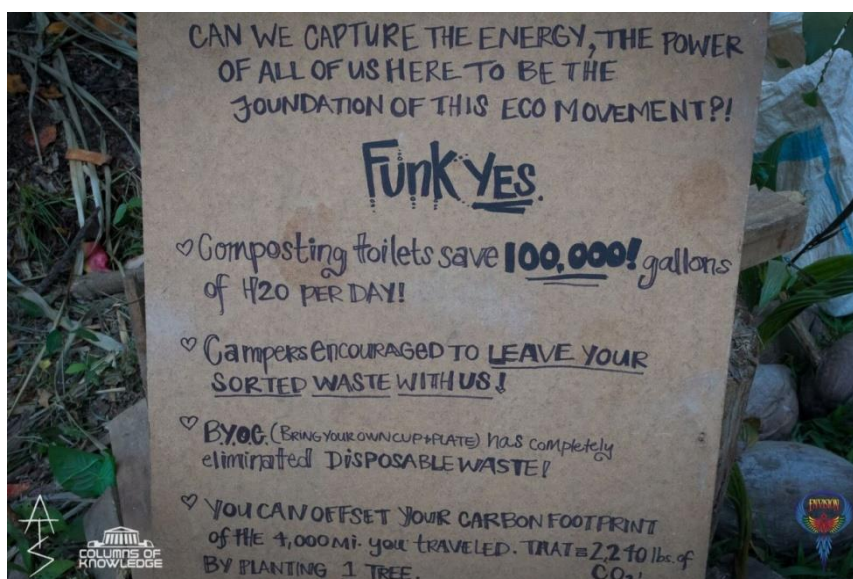 CAN WE CAPTURE THE ENERGY, THE POWER
OF ALL OF US HERE TO BE THE
FOUNDATION OF THIS ECO MOVEMENT?!
Funk YES.
♡ Composting toilets save 100,000! gallons
of H2O PER DAY!
♡ Campers ENCOURAGED TO LEAVE YOUR
SORTED WASTE WITH US!
♡ B.Y.O.C. (BRING YOUR OWN CUP + PLATE) has completely
eliminated DISPOSABLE WASTE!
♡ YOU CAN OFFSET YOUR CARBON FOOTPRINT
of the 4,000 mi. you TRAVELED. THAT = 2,240 lbs. of
BY PLANTING 1 TREE. CO2!
ATS
COLUMNS OF
KNOWLEDGE
ENVISION